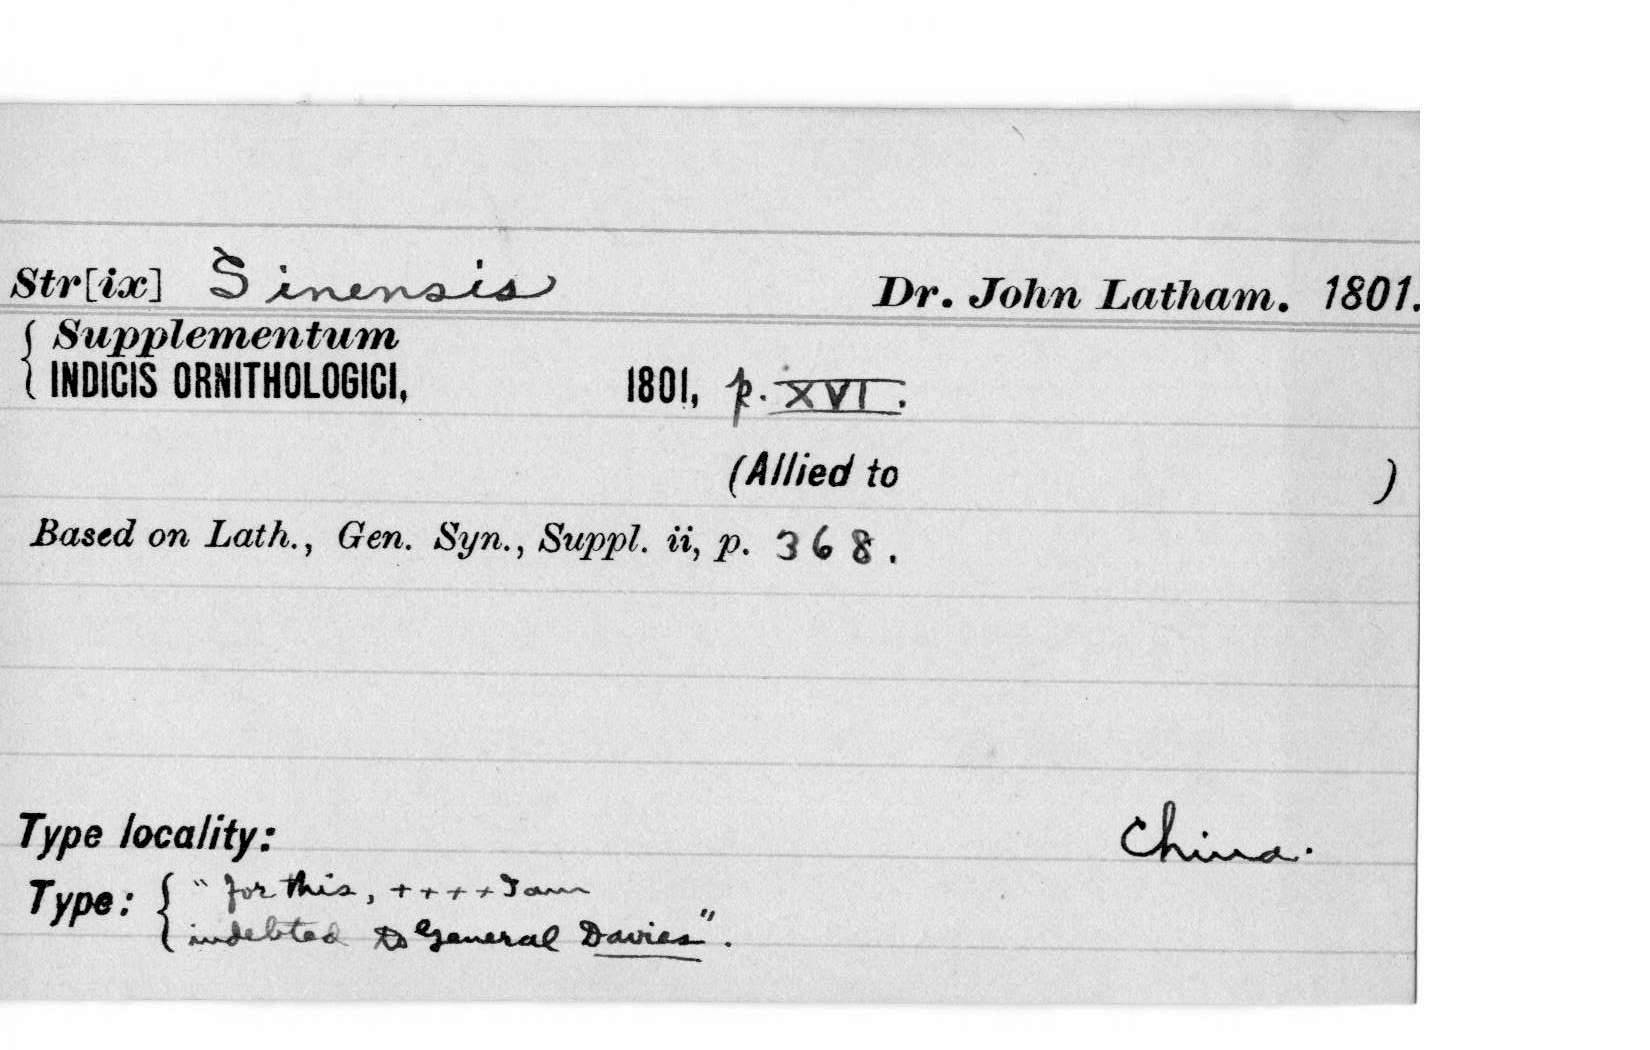 Str[ix] Sinensis Dr. John Latham. 1801.
Supplementum
INDICIS ORNITHOLOGICI, 1801, p. XVI.
(Allied to )
Based on Lath., Gen. Syn., Suppl. ii, p. 368.
Type locality: China.
Type: "for this, ++++ I am
indebted to General Davies".